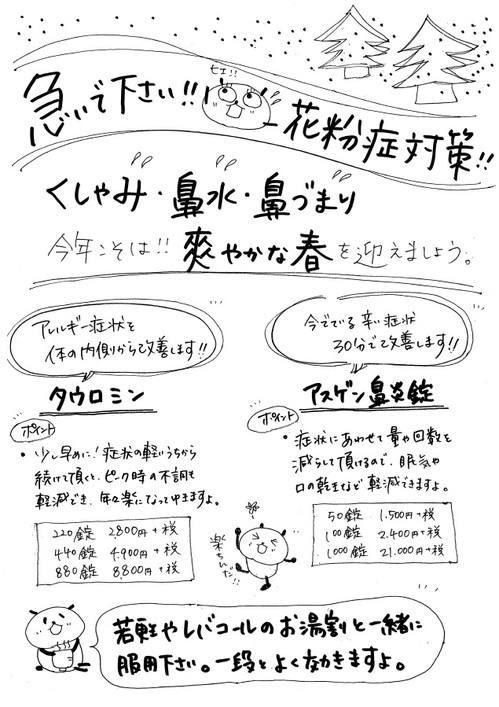 急いで下さい!! 花粉症対策!!
くしゃみ・鼻水・鼻づまり
今年こそは!! 爽やかな春を迎えましょう。
アレルギー症状を
体の内側から改善します!!
タウロミン
ポイント
・少し早めに!症状の軽いうちから
続けて頂くと、ピーク時の不調も
軽減でき、年々楽になってゆきますよ。
220錠 2800円+税
440錠 4.900円+税
880錠 8,800円+税
今でてる辛い症状
30分で改善します!!
アスゲン鼻炎錠
ポイント
・症状にあわせて量や回数を
減らして頂けるので、眠気や
口の乾きなど軽減できますよ。
50錠 1.500円+税
100錠 2.400円+税
1000錠 21.000円+税
楽ちんだ!!
若軽やレバコールのお湯割と一緒に
服用下さい。一段とよく効きますよ。